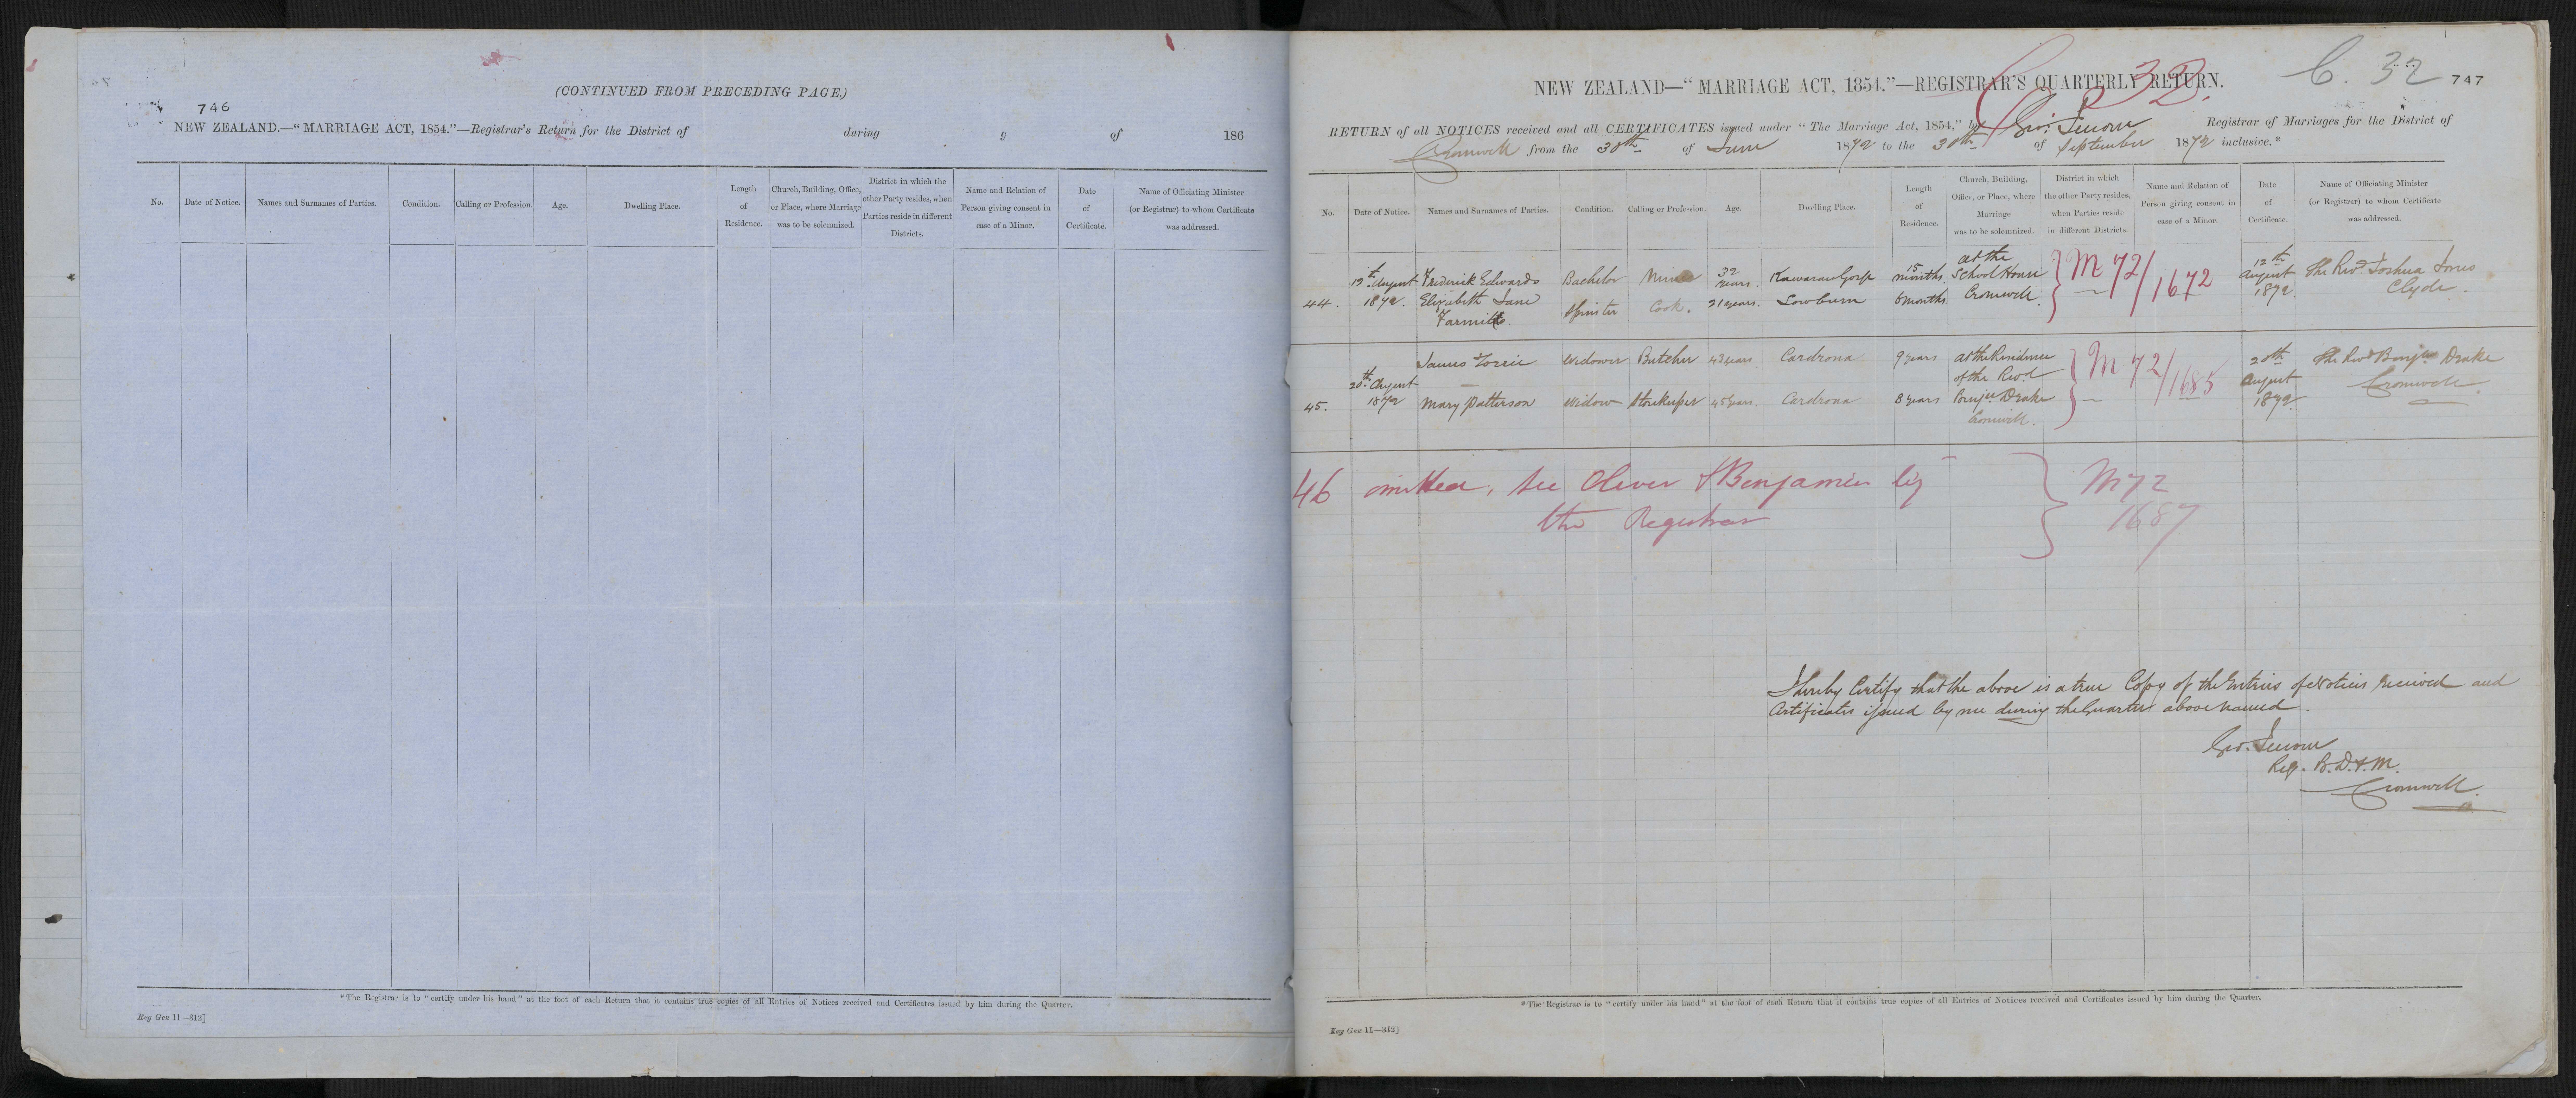 (CONTINUED FROM PRECEDING PAGE.)
746
NEW ZEALAND.—"MARRIAGE ACT, 1854."—Registrar's Return for the District of during of 186
No.
Date of Notice.
Names and Surnames of Parties.
Condition.
Calling or Profession.
Age.
Dwelling Place.
Length
of
Residence.
Church, Building, Office,
or Place, where Marriage
was to be solemnized.
District in which the
other Party resides, when
Parties reside in different
Districts.
Name and Relation of
Person giving consent in
case of a Minor.
Date
of
Certificate.
Name of Officiating Minister
(or Registrar) to whom Certificate
was addressed.
*The Registrar is to "certify under his hand" at the foot of each Return that it contains true copies of all Entries of Notices received and Certificates issued by him during the Quarter.
Reg Gen 11—312]
NEW ZEALAND—"MARRIAGE ACT, 1854."—REGISTRAR'S QUARTERLY RETURN.
C. 32
747
RETURN of all NOTICES received and all CERTIFICATES issued under "The Marriage Act, 1854," by Geo: Registrar of Marriages for the District of
Cromwell from the 30th of June 1872 to the 30th of September 1872 inclusive.*
No.
Date of Notice.
Names and Surnames of Parties.
Condition.
Calling or Profession.
Age.
Dwelling Place.
Length
of
Residence.
Church, Building,
Office, or Place, where
Marriage
was to be solemnized.
District in which
the other Party resides,
when Parties reside
in different Districts.
Name and Relation of
Person giving consent in
case of a Minor.
Date
of
Certificate.
Name of Officiating Minister
(or Registrar) to whom Certificate
was addressed.
44.
12th August
1872.
Frederick Edwards
Elizabeth Jane
Bachelor
Spinster
Miner
Cook.
32
years.
21 years.
Kawarau Gorge
Lowburn
15
months.
6 months.
at the
School House
Cromwell.
M 72/1672
12th
August
1872
The Revd. Joshua Jones
Clyde.
45.
20th August
1872
James
Mary Patterson
Widower
Widow
Butcher
Storekeeper
43 years.
45 years.
Cardrona
Cardrona
9 years
8 years
at the Residence
of the Revd
Benjn. Drake
Cromwell.
M 72/1685
20th
August
1872.
The Revd Benjn Drake
Cromwell.
46 omitted, see Oliver & Benjamin by
the Registrar
M 72
1687
I hereby Certify that the above is a true Copy of the Entries of Notices received and
Certificates issued by me during the Quarter above named.
Geo.
Reg. B. D. & M.
Cromwell.
*The Registrar is to "certify under his hand" at the foot of each Return that it contains true copies of all Entries of Notices received and Certificates issued by him during the Quarter.
Reg Gen 11—312]